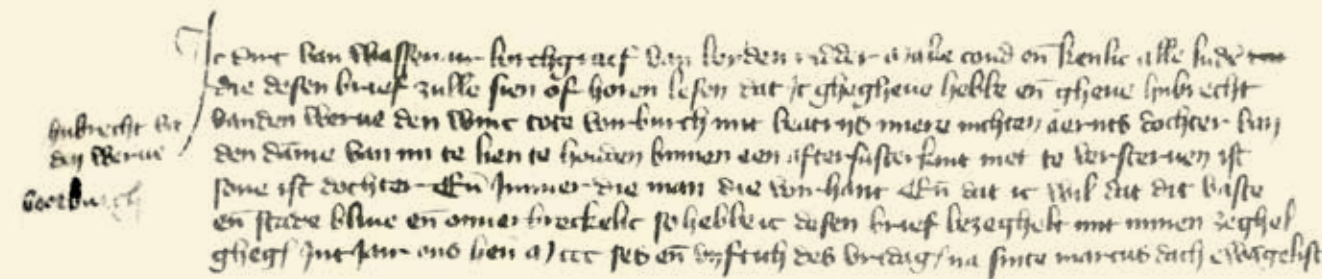 Ic dirc van Wassenair borchgraef van leyden ridder make cond en kenlic alle lude
die desen brief zulle sien of horen lesen dat ic ghegheue hebbe en gheue hubrecht
hubrecht van
den Werue
voerburch
vanden Werue den Winc tote voirburch mit beatrijs miere nichten aernts dochter van
den dāme van mi te lien te houden binnen een aftersusterkint niet te versteruen ist
sone ist dochter En Jmmer die man die voirhant En dat ic wil dat dit vaste
en stade bliue en onuerbreckelic so hebbe ic desen brief bezeghelt mit minen zeghel
ghegh Jnt Jair ons hen M ccc ses en vijftich des vridag na sinte marcus dach ewāgelist